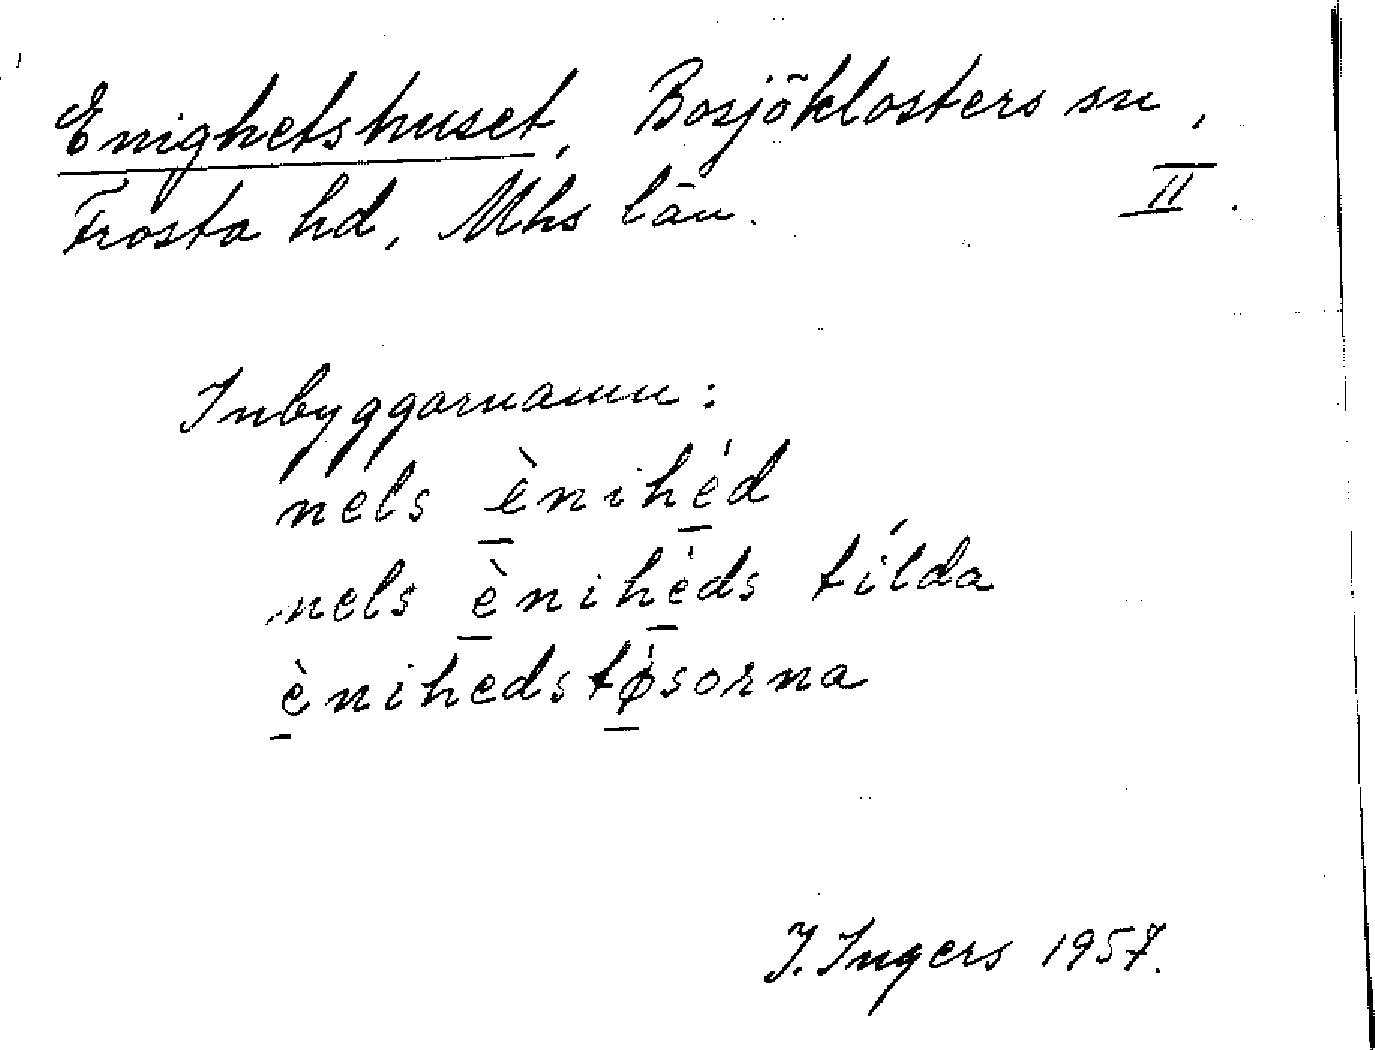 Enighetshuset, Bosjöklosters sn,
Frosta hd, Mhs län. II.
Inbyggarnamn:
nels ènihéd
nels ènihéds tílda
ènihedstǿsorna
I. Ingers 1957.